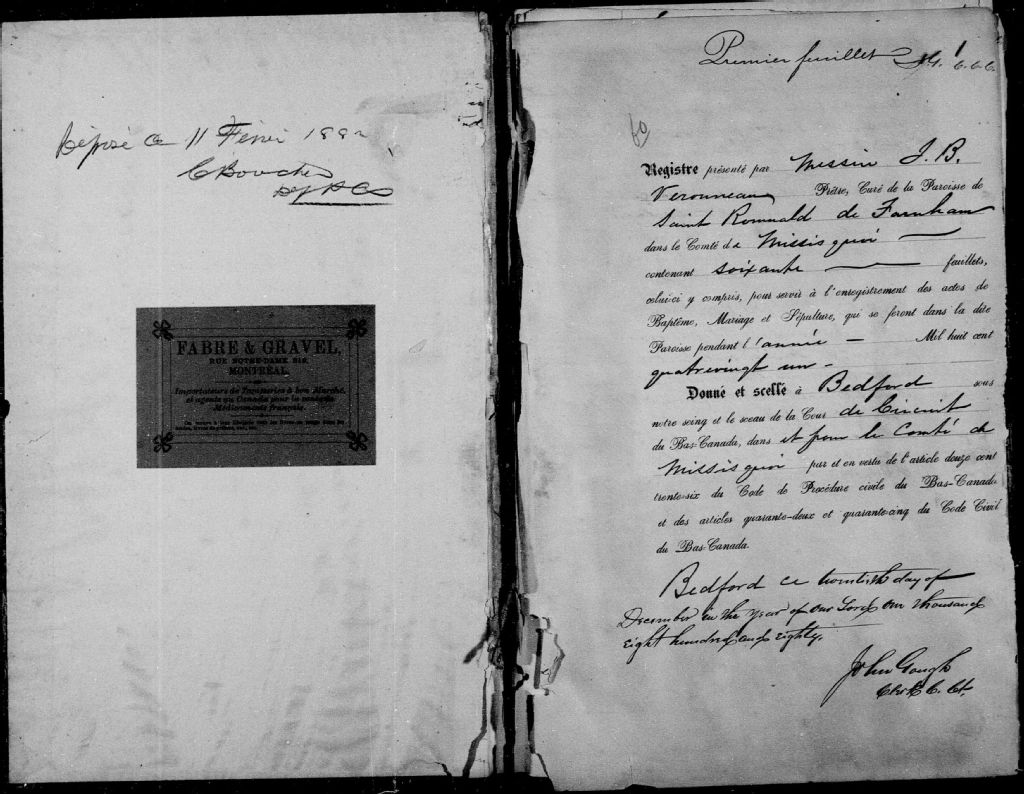 Déposé ce 11 Février 1882
C Boucher
Dep P C C
FABRE & GRAVEL,
RUE NOTRE-DAME 219,
MONTRÉAL.
Importateurs de Tapisseries à bon Marché,
et agents au Canada pour la vente de
Médicaments français.
Premier feuillet J.G. 1
C.C.C.
60
Registre présenté par Messire J. B.
Veronneau Prêtre, Curé de la Paroisse de
Saint Romuald de Farnham
dans le Comté de Missisquoi
contenant soixante feuillets,
celui-ci y compris, pour servir à l'enregistrement des actes de
Baptême, Mariage et Sépulture, qui se feront dans la dite
Paroisse pendant l'année — Mil huit cent
quatrevingt un -
Donné et scellé à Bedford sous
notre seing et le sceau de la Cour de Circuit
du Bas-Canada, dans et pour le Comté de
Missisquoi par et en vertu de l'article douze cent
trente-six du Code de Procédure civile du Bas-Canada
et des articles quarante-deux et quarante-cinq du Code Civil
du Bas-Canada.
Bedford ce twentieth day of
December in the year of our Lord one thousand
eight hundred and eighty.
John Gough
Clk C. Ct.